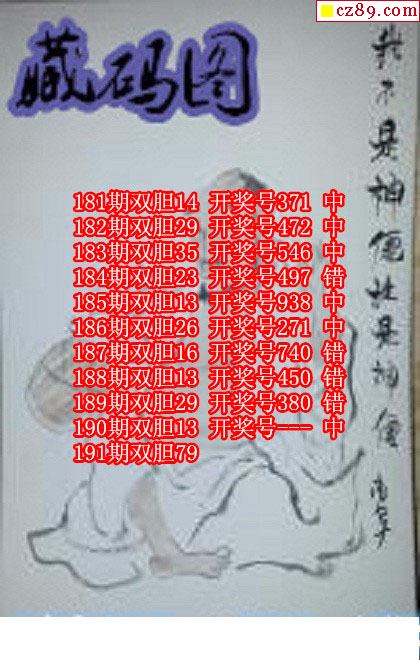 cz89.com
藏码图
181期双胆14 开奖号371 中
182期双胆29 开奖号472 中
183期双胆35 开奖号546 中
184期双胆23 开奖号497 错
185期双胆13 开奖号938 中
186期双胆26 开奖号271 中
187期双胆16 开奖号740 错
188期双胆13 开奖号450 错
189期双胆29 开奖号380 错
190期双胆13 开奖号--- 中
191期双胆79
我不是神僊
是神僊